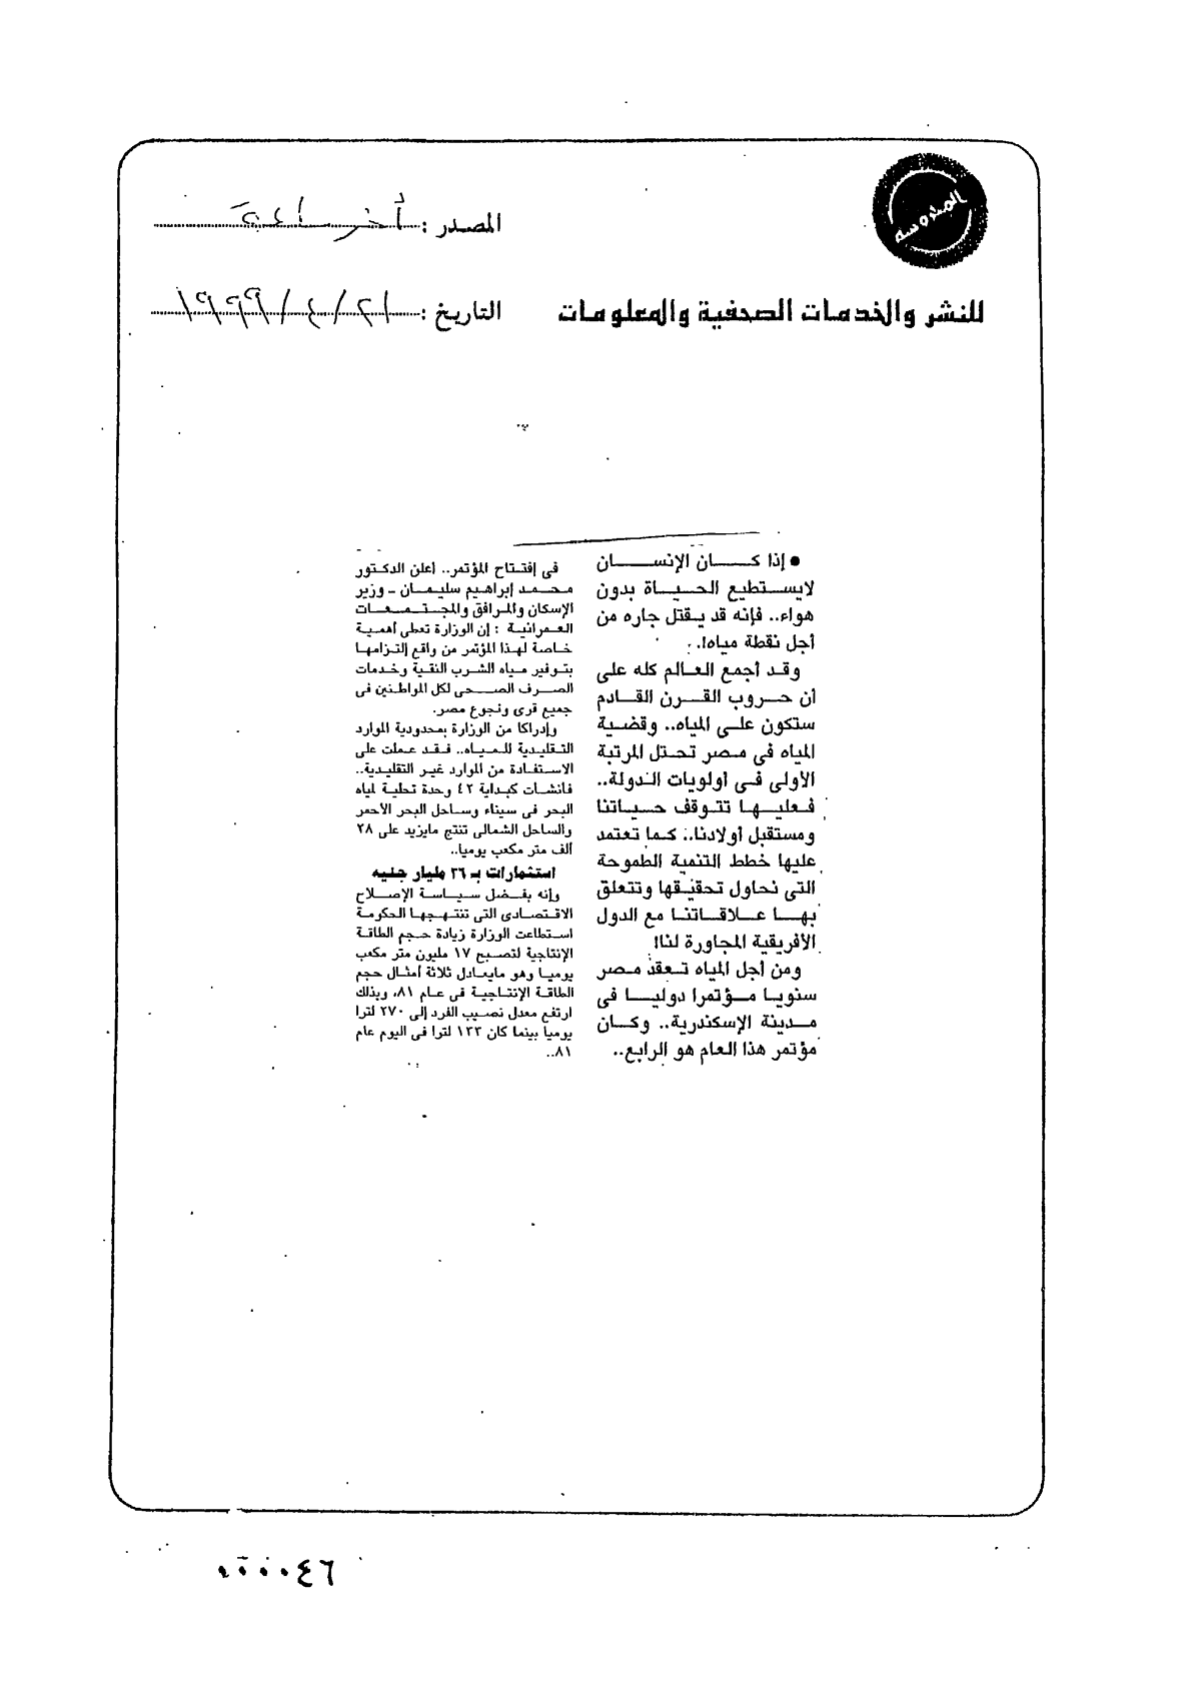 المحروسة
المصدر : أخر ساعة
للنشر والخدمات الصحفية والمعلومات
التاريخ : ٢١ / ٤ / ١٩٩٩
● إذا كـــان الإنســـــان
لايستطيع الحياة بدون
هواء.. فإنه قد يقتل جاره من
أجل نقطة مياه!.
وقد أجمع العالم كله على
أن حروب القرن القادم
ستكون على المياه.. وقضية
المياه فى مصر تحتل المرتبة
الأولى فى أولويات الدولة..
فعليها تتوقف حياتنا
ومستقبل أولادنا.. كما تعتمد
عليها خطط التنمية الطموحة
التى نحاول تحقيقها وتتعلق
بها علاقاتنا مع الدول
الأفريقية المجاورة لنا!
ومن أجل المياه تعقد مصر
سنويا مؤتمرا دوليا فى
مدينة الإسكندرية.. وكان
مؤتمر هذا العام هو الرابع..
فى إفتتاح المؤتمر.. أعلن الدكتور
محمد إبراهيم سليمان - وزير
الإسكان والمرافق والمجتمعات
العمرانية : إن الوزارة تعطى أهمية
خاصة لهذا المؤتمر من واقع إلتزامها
بتوفير مياه الشرب النقية وخدمات
الصرف الصحى لكل المواطنين فى
جميع قرى ونجوع مصر.
وإدراكا من الوزارة بمحدودية الموارد
التقليدية للمياه.. فقد عملت على
الاستفادة من الموارد غير التقليدية..
فأنشات كبداية ٤٢ وحدة تحلية لمياه
البحر فى سيناء وساحل البحر الأحمر
والساحل الشمالى تنتج مايزيد على ٢٨
ألف متر مكعب يوميا..
استثمارات بـ ٢٦ مليار جنيه
وإنه بفضل سياسة الإصلاح
الاقتصادى التى تنتهجها الحكومة
استطاعت الوزارة زيادة حجم الطاقة
الإنتاجية لتصبح ١٧ مليون متر مكعب
يوميا وهو مايعادل ثلاثة أمثال حجم
الطاقة الإنتاجية فى عام ٨١، وبذلك
ارتفع معدل نصيب الفرد إلى ٢٧٠ لترا
يوميا بينما كان ١٢٢ لترا فى اليوم عام
٨١..
٠٠٠٠٤٦